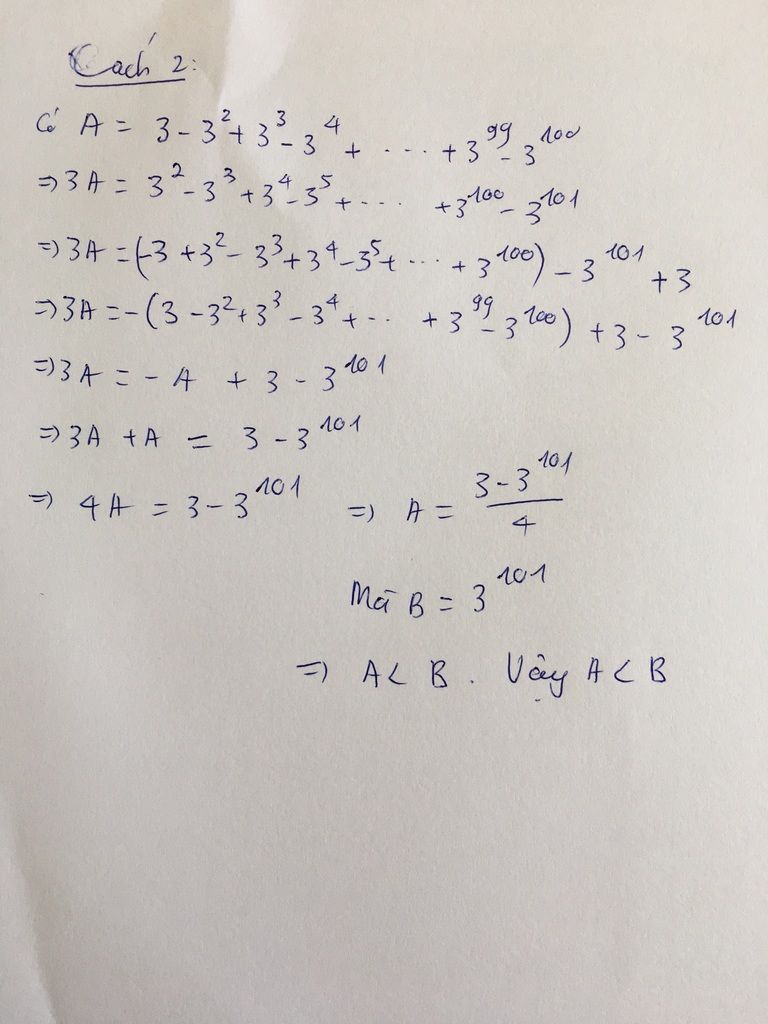 Cách 2:
Có A = 3 - 3² + 3³ - 3⁴ + .... + 3⁹⁹ - 3¹⁰⁰
⇒ 3A = 3² - 3³ + 3⁴ - 3⁵ + .... + 3¹⁰⁰ - 3¹⁰¹
⇒ 3A = (-3 + 3² - 3³ + 3⁴ - 3⁵ + ... + 3¹⁰⁰) - 3¹⁰¹ + 3
⇒ 3A = -(3 - 3² + 3³ - 3⁴ + ... + 3⁹⁹ - 3¹⁰⁰) + 3 - 3¹⁰¹
⇒ 3A = - A + 3 - 3¹⁰¹
⇒ 3A + A = 3 - 3¹⁰¹
⇒ 4A = 3 - 3¹⁰¹ ⇒ A = (3 - 3¹⁰¹)/4
Mà B = 3¹⁰¹
⇒ A < B. Vậy A < B